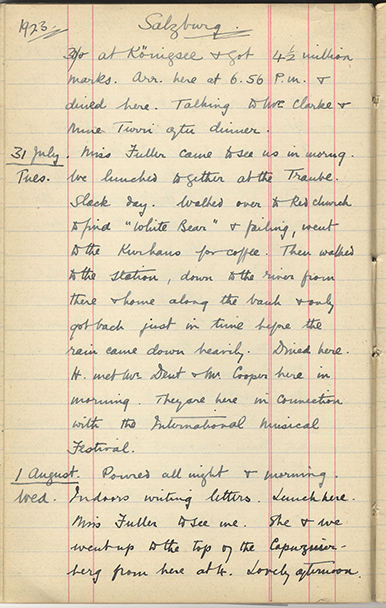 1923. Salzburg.
3/0 at Königsee & got 4½ million
marks. Arr. here at 6.56 P.m. &
dined here. Talking to Mr Clarke &
Mme Turri after dinner.
31 July. Miss Fuller came to see us in morng.
Tues. We lunched together at the Traube.
Slack day. Walked over to Red church
to find "White Bear" & failing, went
to the Kurhaus for coffee. Then walked
to the station, down to the river from
there & home along the bank & only
got back just in time before the
rain came down heavily. Dined here.
H. met Mr. Dent & Mr. Cooper here in
morning. They are here in connection
with the International Musical
Festival.
1 August. Poured all night & morning.
Wed. Indoors writing letters. Lunch here.
Miss Fuller to see me. She & we
went up to the top of the Capuziner-
berg from here at 4. Lovely afternoon.